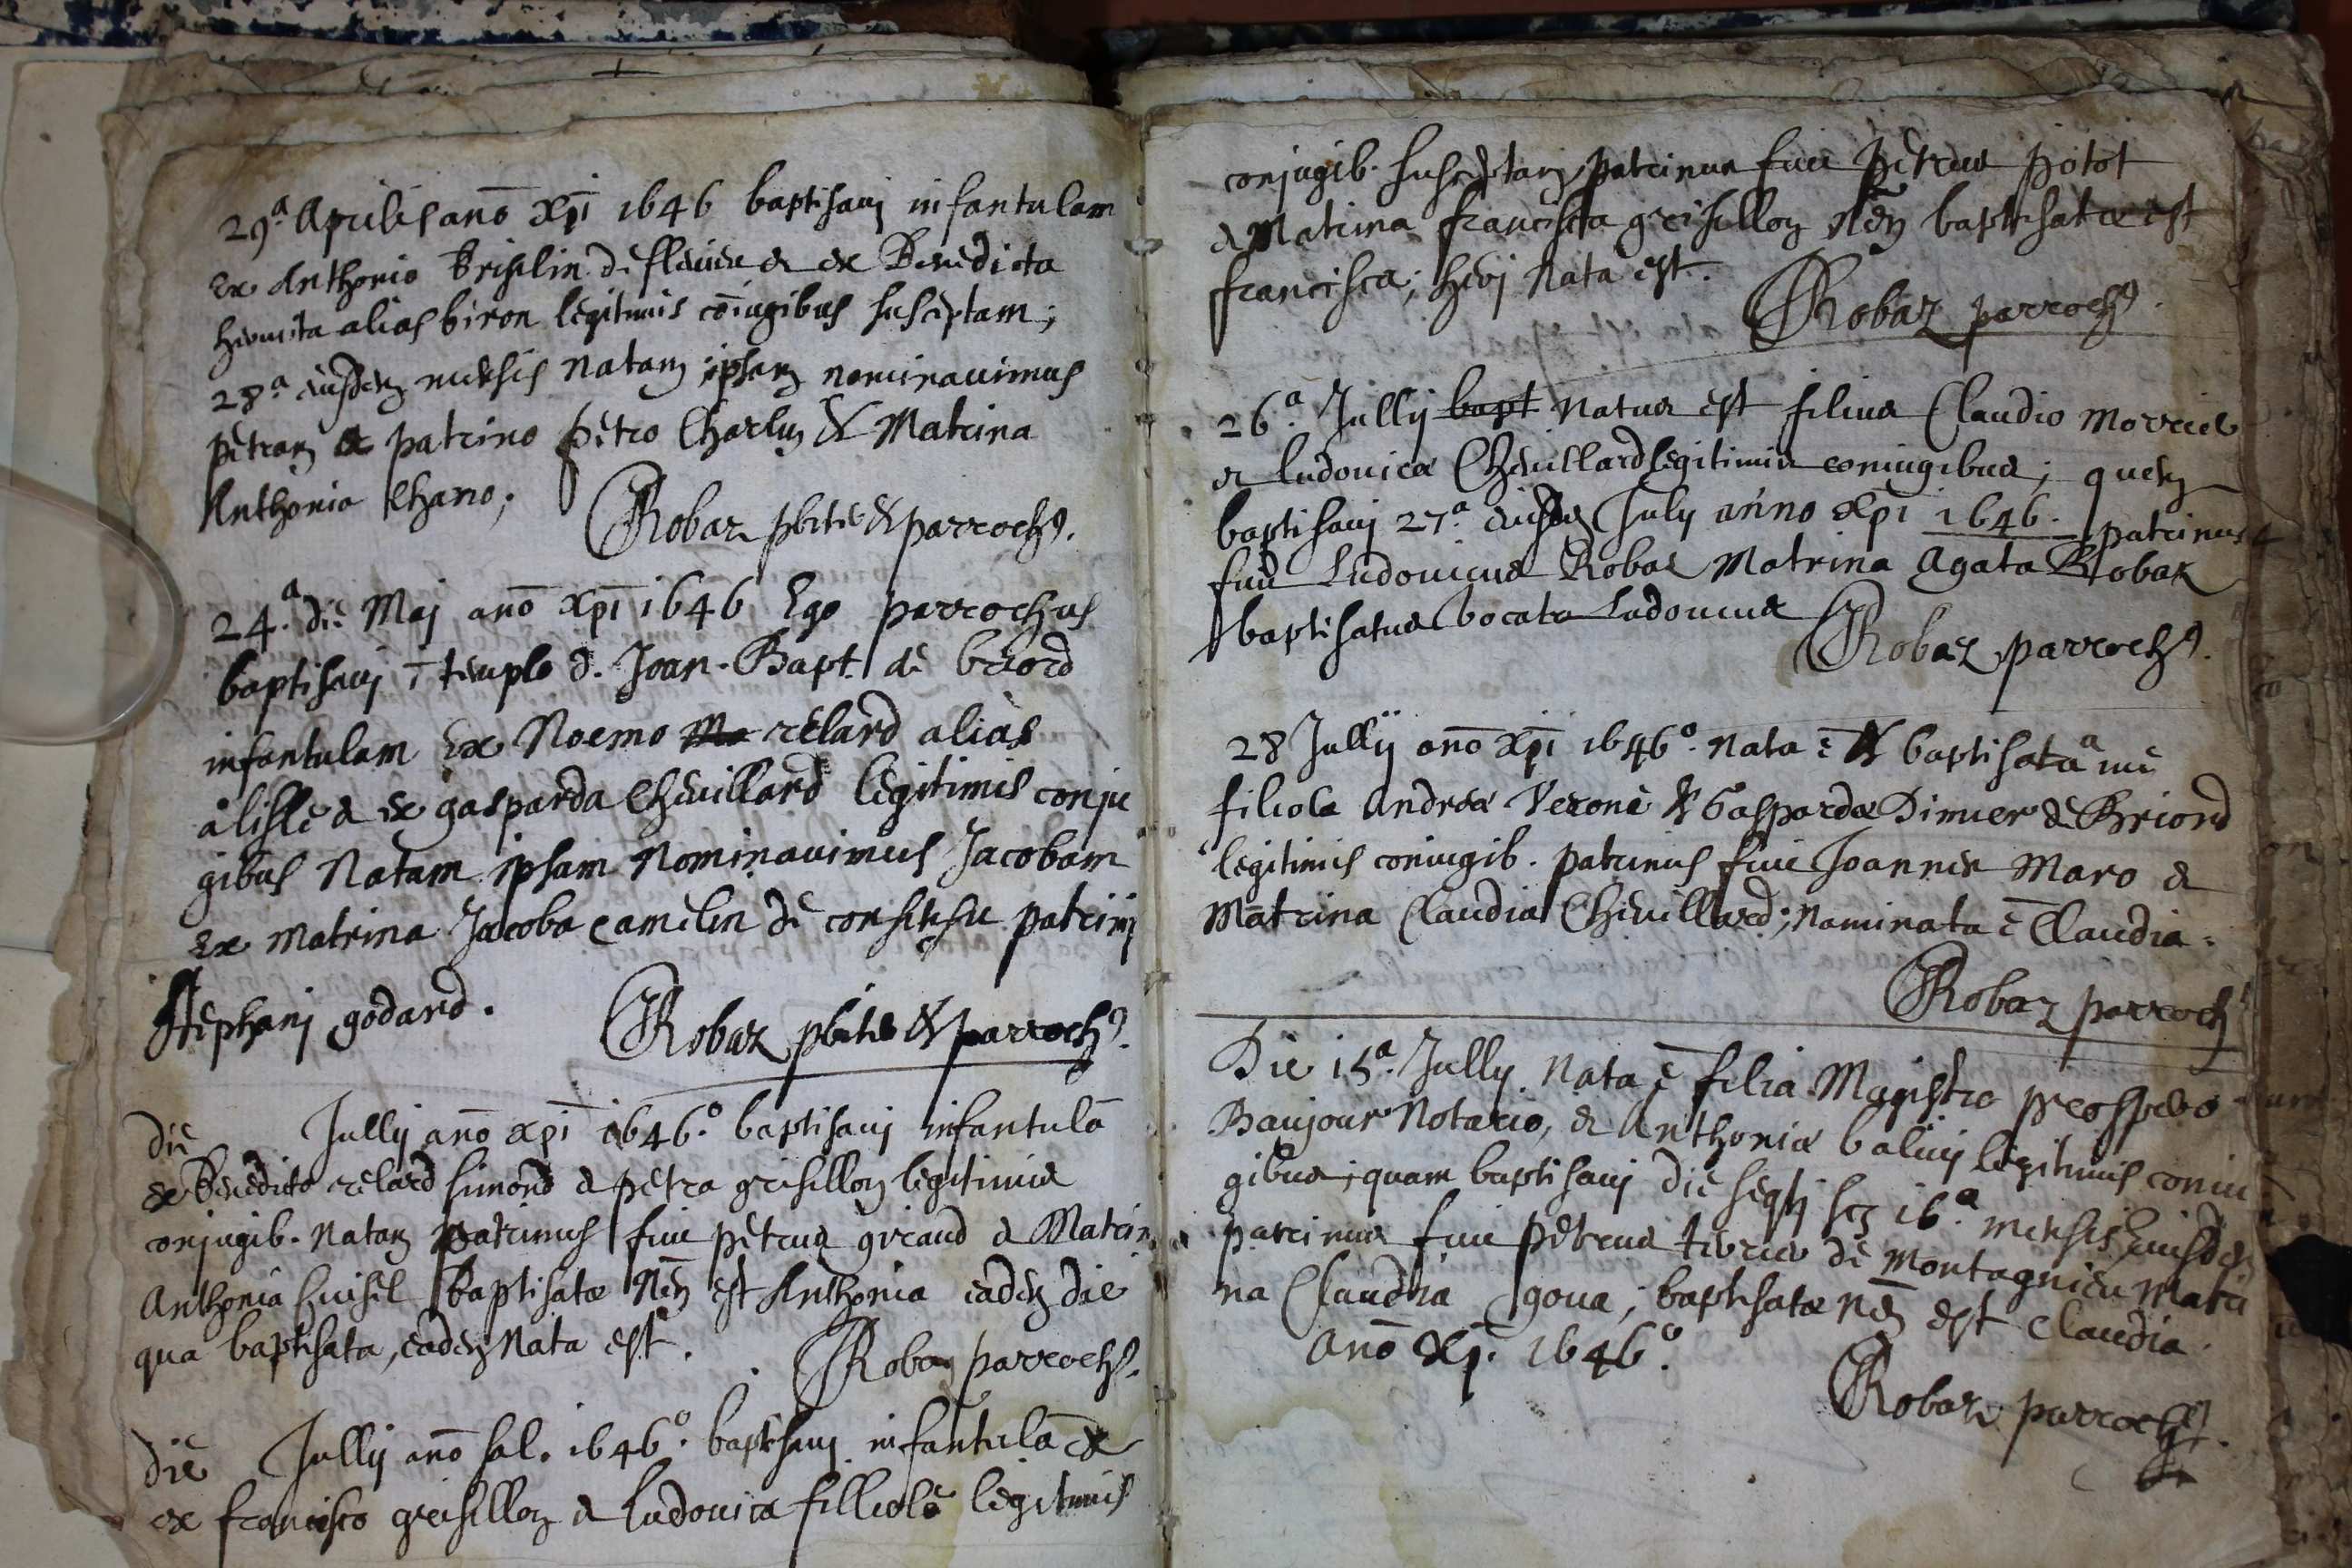 29.a Aprilis anō xpī 1646 baptisavj infantulam
ex Anthonio Briselin de flevieu & ex Benedicta
alias biron legitimis cōiugibus susceptam;
28.a eiusdem mensis natam ipsam nominavimus
petram ex patrino petro Charlin & Matrina
Anthonia Chano;
Robaz pbiter & parrochus.
24.a die Maj anō xpī 1646 Ego parrochus
baptisavj ī templo d. Joan-Bapt. de briord
infantulam Ex Noemo relard alias
& ex gasparda Chevillard legitimis conju
gibus Natam ipsam nominavimus Jacobam
Ex matrina Jacoba camelin de consensu patrinj
Stephanj godard.
Robaz pbiter & parrochus.
die Jullij anō xpī 1646.o baptisavj infantulā
ex Benedicto relard simond & petra grisillon legitimis
conjugib. natam patrinus fuit petrus giraud & Matrin
Anthonia baptisatæ nēn est Anthonia eadem die
qua baptisata, eadem nata est.
Robaz parrochus.
die Jullij anō sal. 1646.o baptisavj infantulā ex
ex francisco grisillon & Ludovica filliolé legitimis
conjugib. susceptam patrinus fuit petrus pitot
& Matrina francisca grisillon nēn baptisatæ est
francisca; herj nata est.
Robaz parrochus.
26.a Jullij bapt natus est filius Claudio morrier
et Ludovicæ Chevillard legitimis coniugibus; quem
baptisavj 27.a eiusdem July anno xpī 1646. patrinus
fuit Ludovicus Robaz Matrina Agata Robaz
baptisatus vocatur Ludovicus
Robaz parrochus.
28 Jullij anō xpī 1646.o nata ē & baptisata a me
filiola Andreæ Verone & Gaspardæ Dimier de Briord
legitimis coniugib. patrinus fuit Joannes Maro &
Matrina Claudia Chevillard; nominata ē Claudia.
Robaz parroch
Die 15.a Jully. Nata ē filia Magistro prospero
Baujour Notario, & Anthoniæ baluy legitimis coniu
gibus; quam baptisavj die seqtj scz 16.a mensis eiusdem
patrinus fuit petrus terrier de montagnieu Matri
na Claudia goua; baptisatæ nēn est Claudia.
Anō xpī. 1646.o
Robaz parrochus.